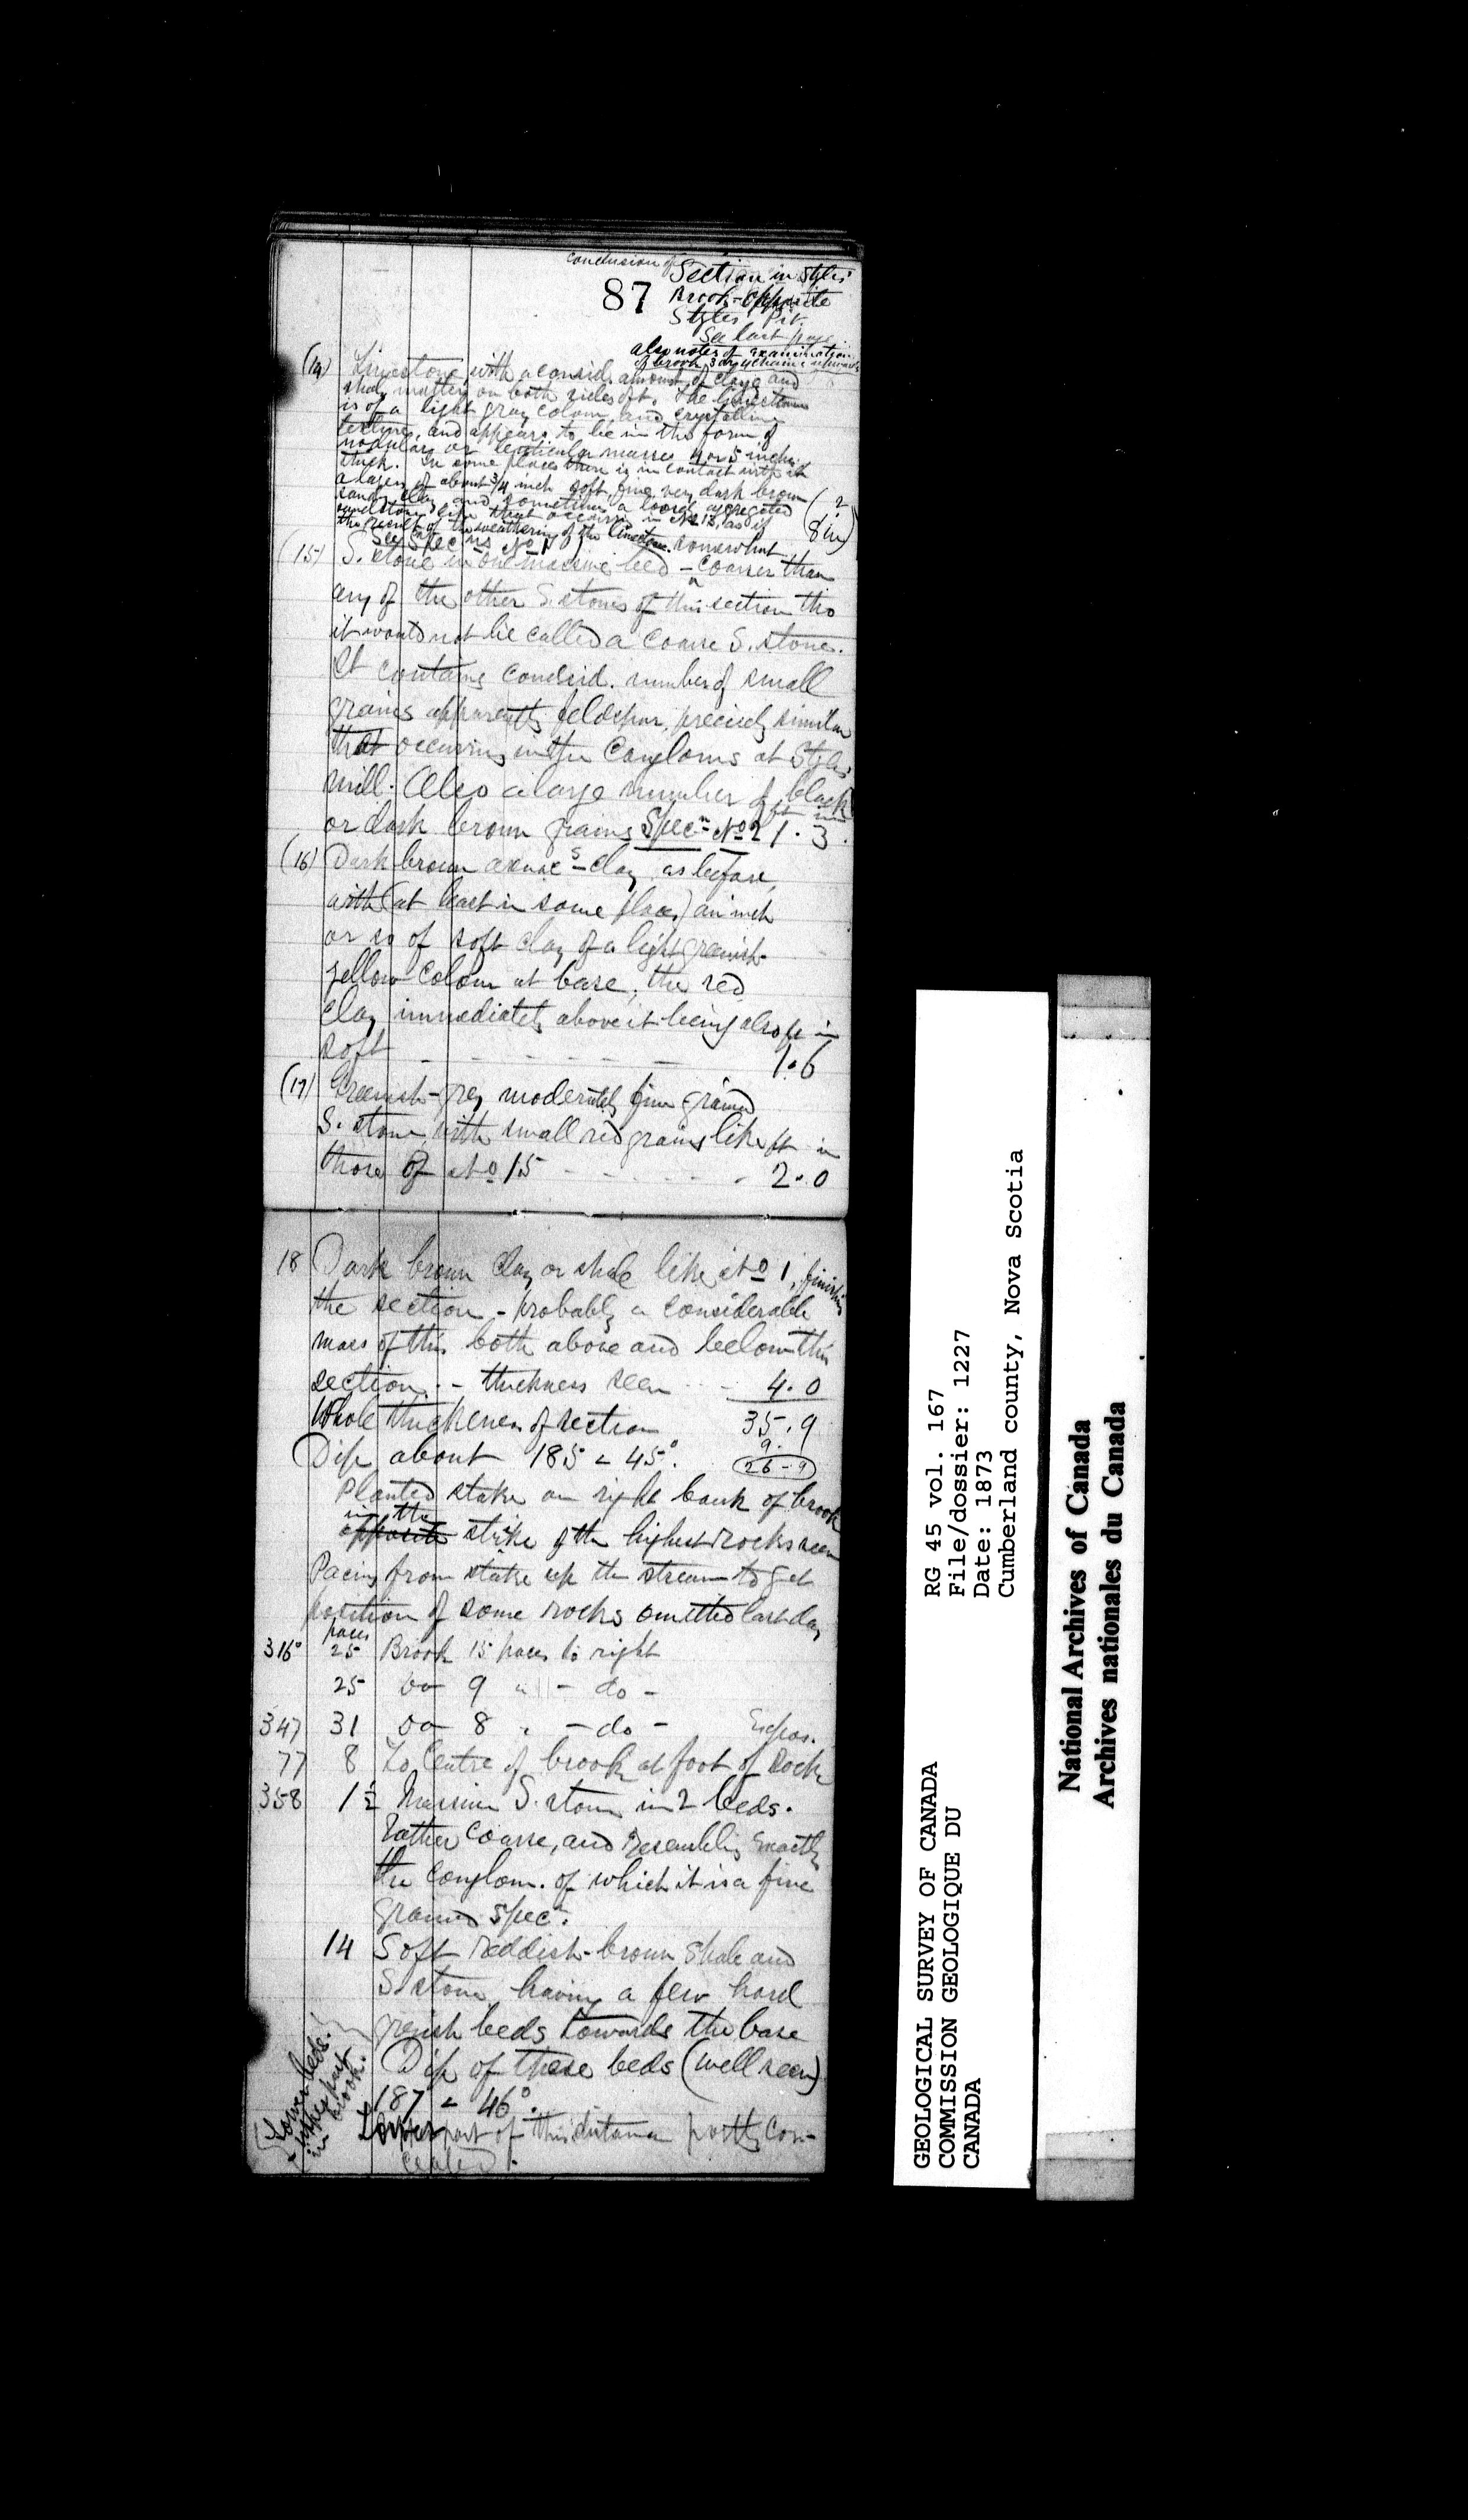 conclusion of Section in Styles
87 Brook - Opposite
Styles Pit.
See last page
also notes of examination
of brook, 3 or 4 chains upwards
(14) Limestone, with a consid. amount of clay and
shaly matter on both sides of it. The limestone
is of a light gray colour, and crystalline
texture, and appears to be in the form of
nodular or lenticular masses 4 or 5 inches
thick. In some places there is in contact with it
a layer of about 3/4 inch soft fine very dark brown
sandy clay and sometimes a loosely aggregated
sandstone like that occurring in No 13, as if
the result of the weathering of the limestone. (2. 8 in)
See Specns No 1
(15) S. stone in one massive bed - somewhat coarser than
any of the other S. stones of this section tho
it would not be called a coarse S. stone.
It contains considd. number of small
grains apparently feldspar, precisely similar
that occurring in the Congloms at Styles
mill. Also a large number of black
or dark brown grains Specn No 2 ft 1. in 3.
(16) Dark brown clay as before,
with (at least in some places) an inch
or so of soft clay of a light greenish-
yellow colour at base; the red
clay immediately above it being also ft in
soft - - - - - - 1.6
(17) Greenish-grey moderately fine grained
S. stone, with small red grains like ft in
those of No 15 - - - - - 2.0
18 Dark brown clay or shale like No 1, finishing
the section - probably a considerable
mass of this both above and below this
section. - thickness seen - - 4.0
Whole thickness of section 35.9
9.
Dip about 185 ∠ 45°. 26-9
Planted stake on right bank of brook
in the
opposite strike of the highest rocks seen
Pacing from stake up the stream to get
position of some rocks omitted last day
paces
316° 25 Brook 15 paces to right
25 Do 9 " - do -
347 31 Do 8 " - do - Expos.
77 8 To Centre of brook at foot of rock
358 1 1/2 Massive S. stone in 2 beds.
Rather coarse, and resembling exactly
the conglom. of which it is a fine
grained specn.
14 Soft reddish-brown shale and
S. stone, having a few hard
greyish beds towards the base
Dip of these beds (well seen)
187 ∠ 46°.
Lower part of this distance partly con-
cealed.
Lower beds.
in upper part
in brook.
GEOLOGICAL SURVEY OF CANADA
COMMISSION GEOLOGIQUE DU
CANADA
RG 45 vol. 167
File/dossier: 1227
Date: 1873
Cumberland county, Nova Scotia
National Archives of Canada
Archives nationales du Canada